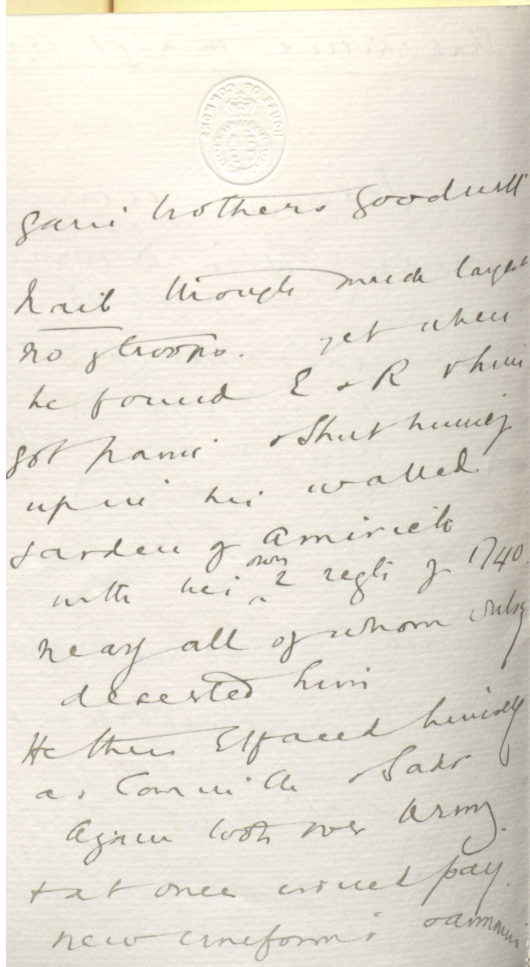 HOUSE OF COMMONS
gain brothers goodwill
Naib though much larger
no of troops. yet when
he found E & R &him
got panic & shut himself
up in his walled
garden of Amirieh
with his own 2 regts of 1740
nearly all of whom
deserted him
He then Effaced himself
as Com in Ch & Sadr
Again took over Army
& at once issued pay.
new uniforms &